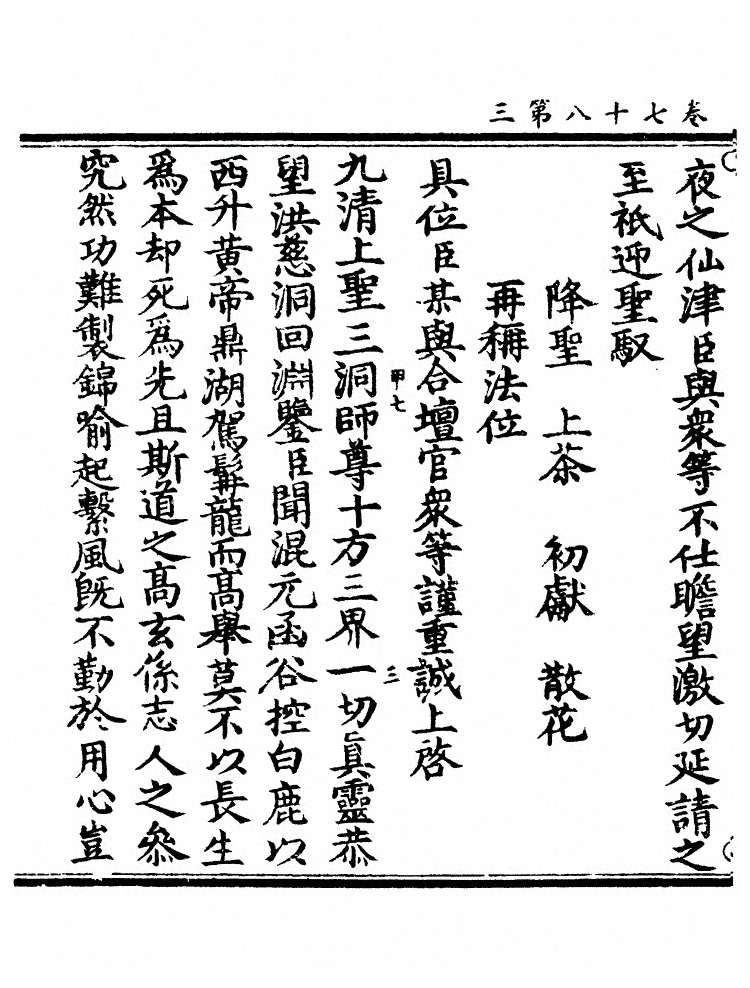 三第八十七卷
夜之仙津臣與衆等不任瞻望激切延請之
至祇迎聖馭
降聖　上茶　初獻　散花
再稱法位
具位臣某與合壇官衆等謹重誠上啓
九清上聖三洞師尊十方三界一切眞靈恭
甲七
三
望洪慈洞回淵鑒臣聞混元函谷控白鹿以
西升黄帝鼎湖駕髯龍而高舉莫不以長生
爲本却死爲先且斯道之高玄係志人之叅
究然功難製錦喻起繫風旣不勤於用心豈